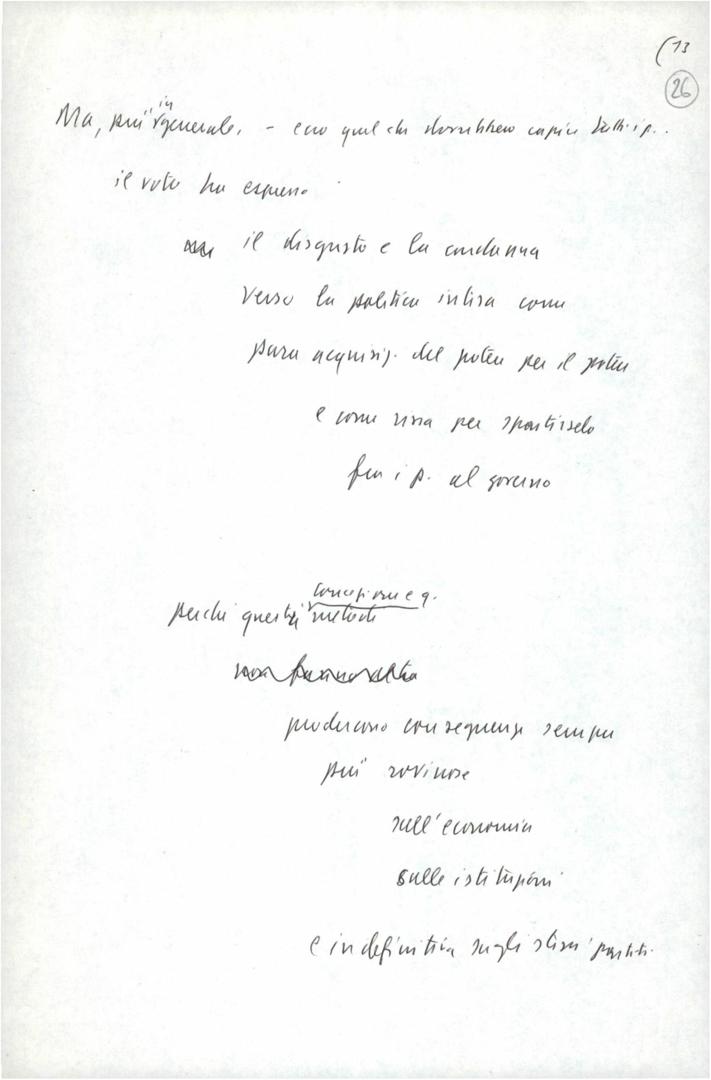 (13
26
Ma, più in generale, - ecco quel che dovrebbero capire tutti i p..
il voto ha espresso
il disgusto e la condanna
verso la politica intesa come
pura acquisiz. del potere per il potere
e come rissa per spartirselo
fra i p. al governo
concezione e q.
perché questi metodi
non fanno altro
producono conseguenze sempre
più rovinose
sull'economia
sulle istituzioni
e in definitiva sugli stessi partiti.